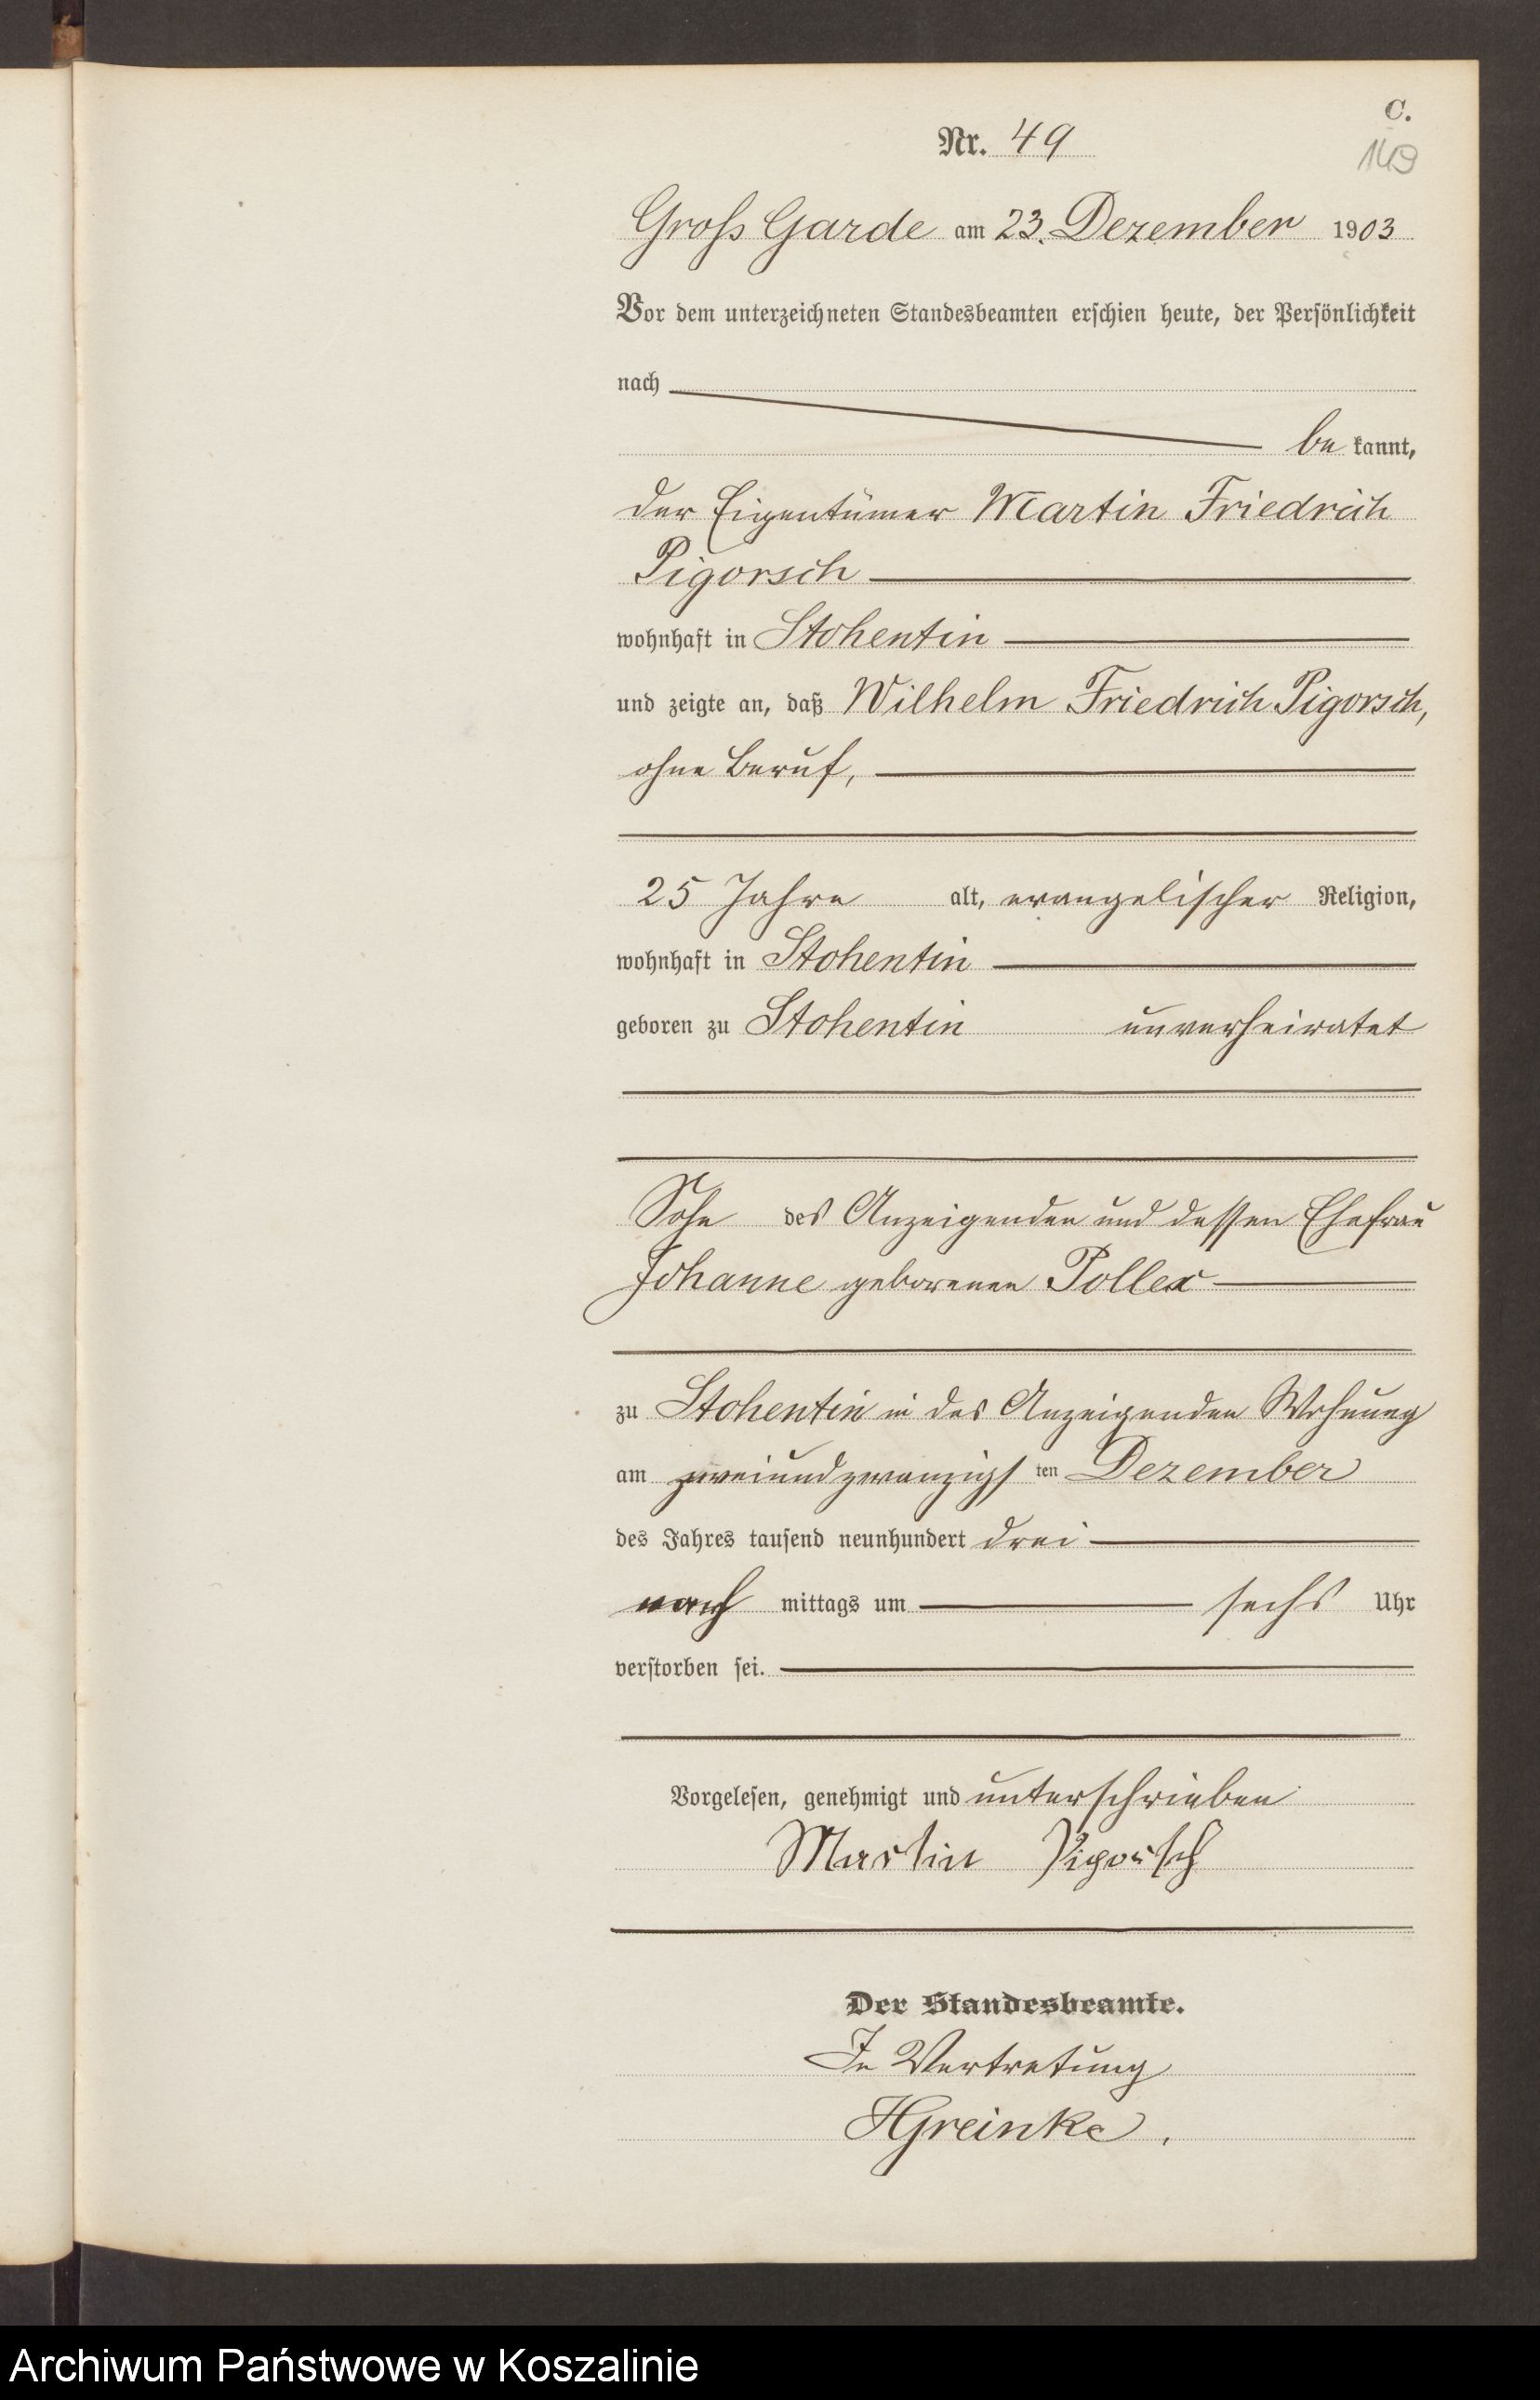 C.
Nr. 49
149
Gross Garde am 23. Dezember 1903
Vor dem unterzeichneten Standesbeamten erschien heute, der Persönlichkeit
nach
be kannt,
der Eigentümer Martin Friedrich
Pigorsch
wohnhaft in Stohentin
und zeigte an, daß Wilhelm Friedrich Pigorsch,
ohne Beruf,
25 Jahre alt, evangelischer Religion,
wohnhaft in Stohentin
geboren zu Stohentin unverheiratet
Sohn des Anzeigenden und dessen Ehefrau
Johanne geborenen Pollex
zu Stohentin in des Anzeigenden Wohnung
am zweiundzwanzigs ten Dezember
des Jahres tausend neunhundert drei
nach mittags um sechs Uhr
verstorben sei.
Vorgelesen, genehmigt und unterschrieben
Martin Pigorsch
Der Standesbeamte.
In Vertretung
HGreinke.
Archiwum Państwowe w Koszalinie